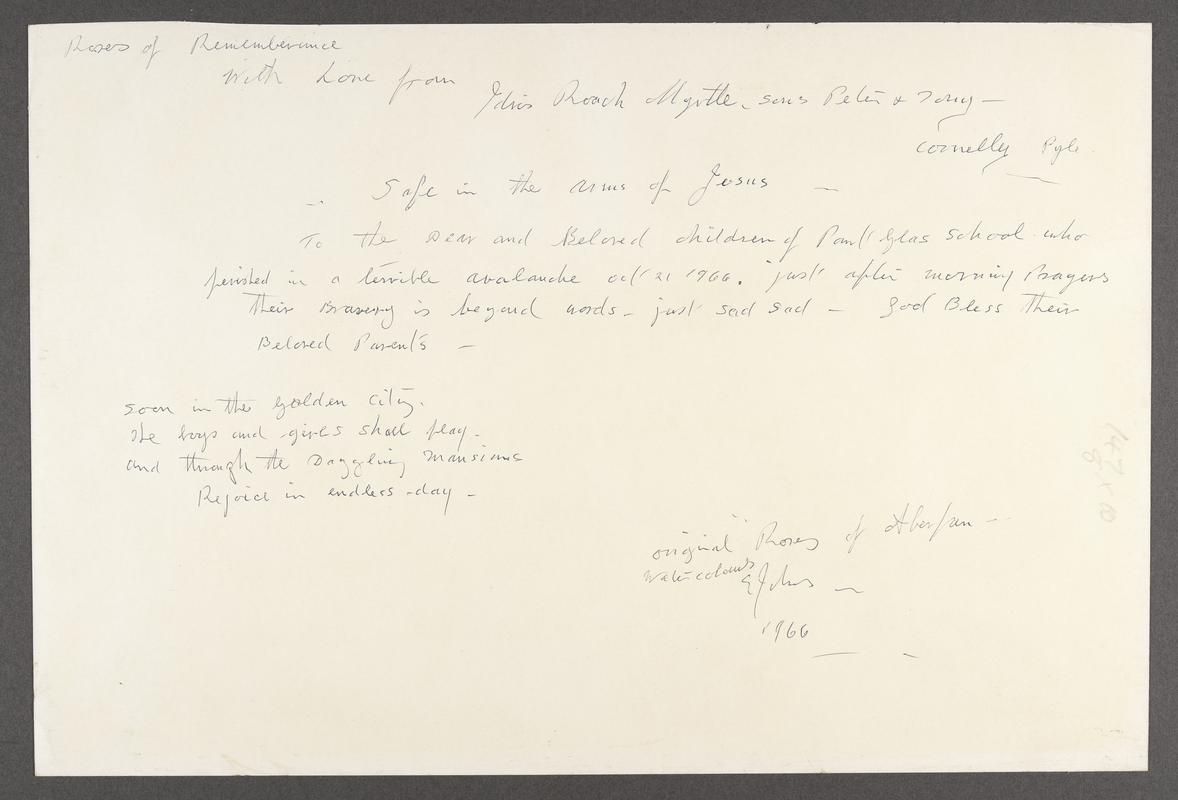 Roses of Rememberance
with Love from
Idris Roach Myrtle, sons Peter & Tony —
Cornelly Pyle.
Safe in the arms of Jesus —
To the Dear and Beloved children of Pant Glas School who
perished in a terrible avalanche oct 21 1966. just after morning Prayers
their Bravery is beyond words - just sad sad — God Bless their
Beloved Parents —
soon in the golden city.
the boys and girls shall play.
and through the Dazzling mansions
Rejoice in endless day -
original Roses of Aberfan —
watercolours
1966